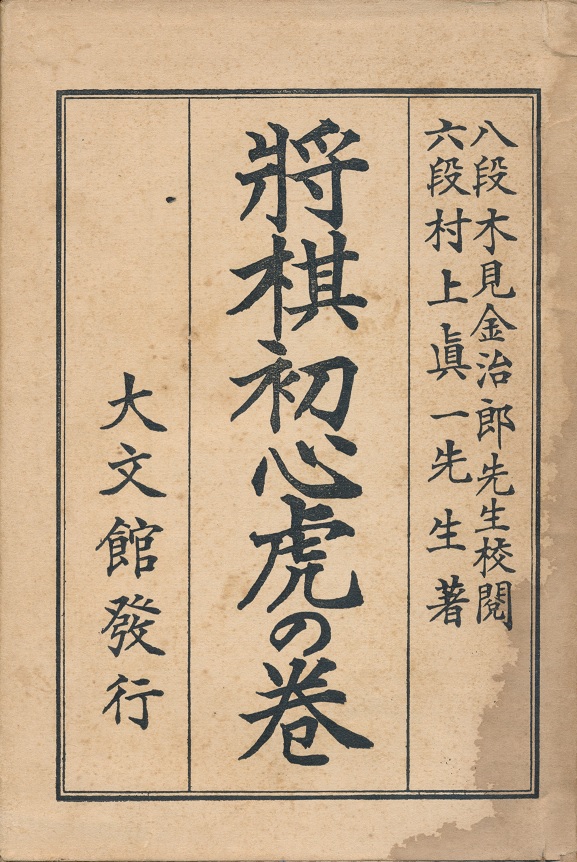 八段木見金治郎先生校閲
六段村上眞一先生著
將棋初心虎の巻
大文館發行